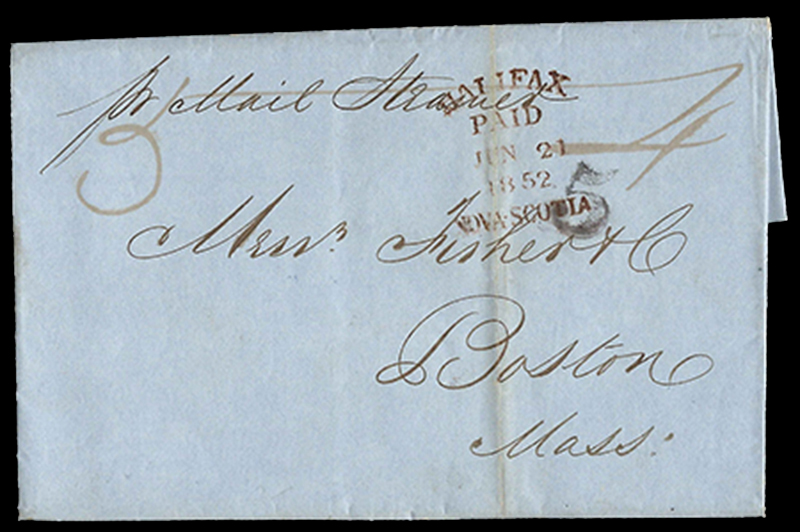 pr Mail Steamer
HALIFAX
PAID
JUN 21
1852
NOVA-SCOTIA
3
4
5
Messrs. Fisher & Co
Boston
Mass: